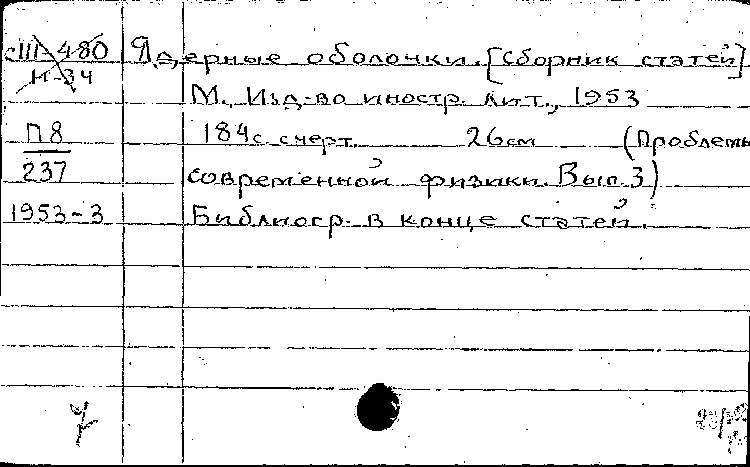 сШ-480 Ядерные оболочки. [Сборник статей]
Н-34
М., Изд-во иностр. лит., 1953
П8 184с с черт. 26см (Проблемы
237 современной физики. Вып. 3)
1953-3 Библиогр. в конце статей.